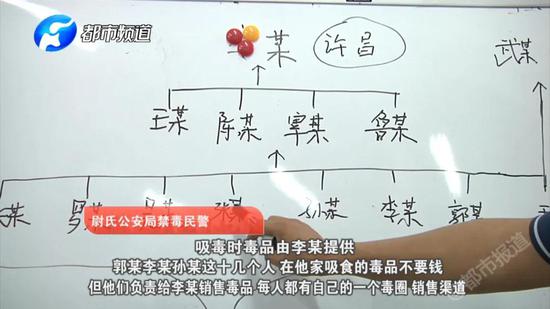 都市频道
某 许昌
武某
王某 陈某 覃某 鲁某
某 罗某 张某 孙某 李某 郭某
尉氏公安局禁毒民警
吸毒时毒品由李某提供
郭某李某孙某这十几个人 在他家吸食的毒品不要钱
但他们负责给李某销售毒品 每人都有自己的一个毒圈 销售渠道
@都市报道